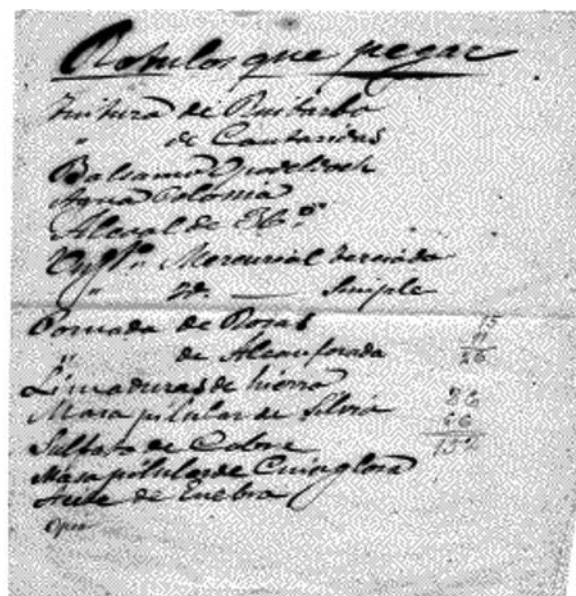 Rotulos que pegar
Tintura de Ruibarbo
" de Cantaridas
Balsamo Opodeldoch
Agua Colonia
Alcool de
Ungto. Mercurial terciado
" Id. — Simple
Pomada de Rosas 15
" de Alcanforada 11
26
Limaduras de hierro
Masa pilular de Silvia 86
Sulfato de Cobre 66
152
Masa pilular de Cinoglosa
de Enebro